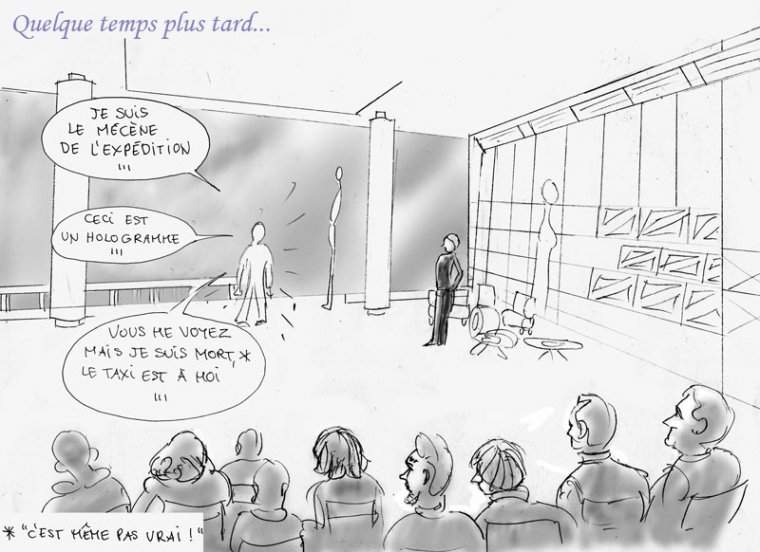 Quelque temps plus tard...
JE SUIS
LE MÉCÈNE
DE L'EXPÉDITION
!!!
CECI EST
UN HOLOGRAMME
!!!
VOUS ME VOYEZ
MAIS JE SUIS MORT,*
LE TAXI EST À MOI
!!!
* "C'EST MÊME PAS VRAI !"